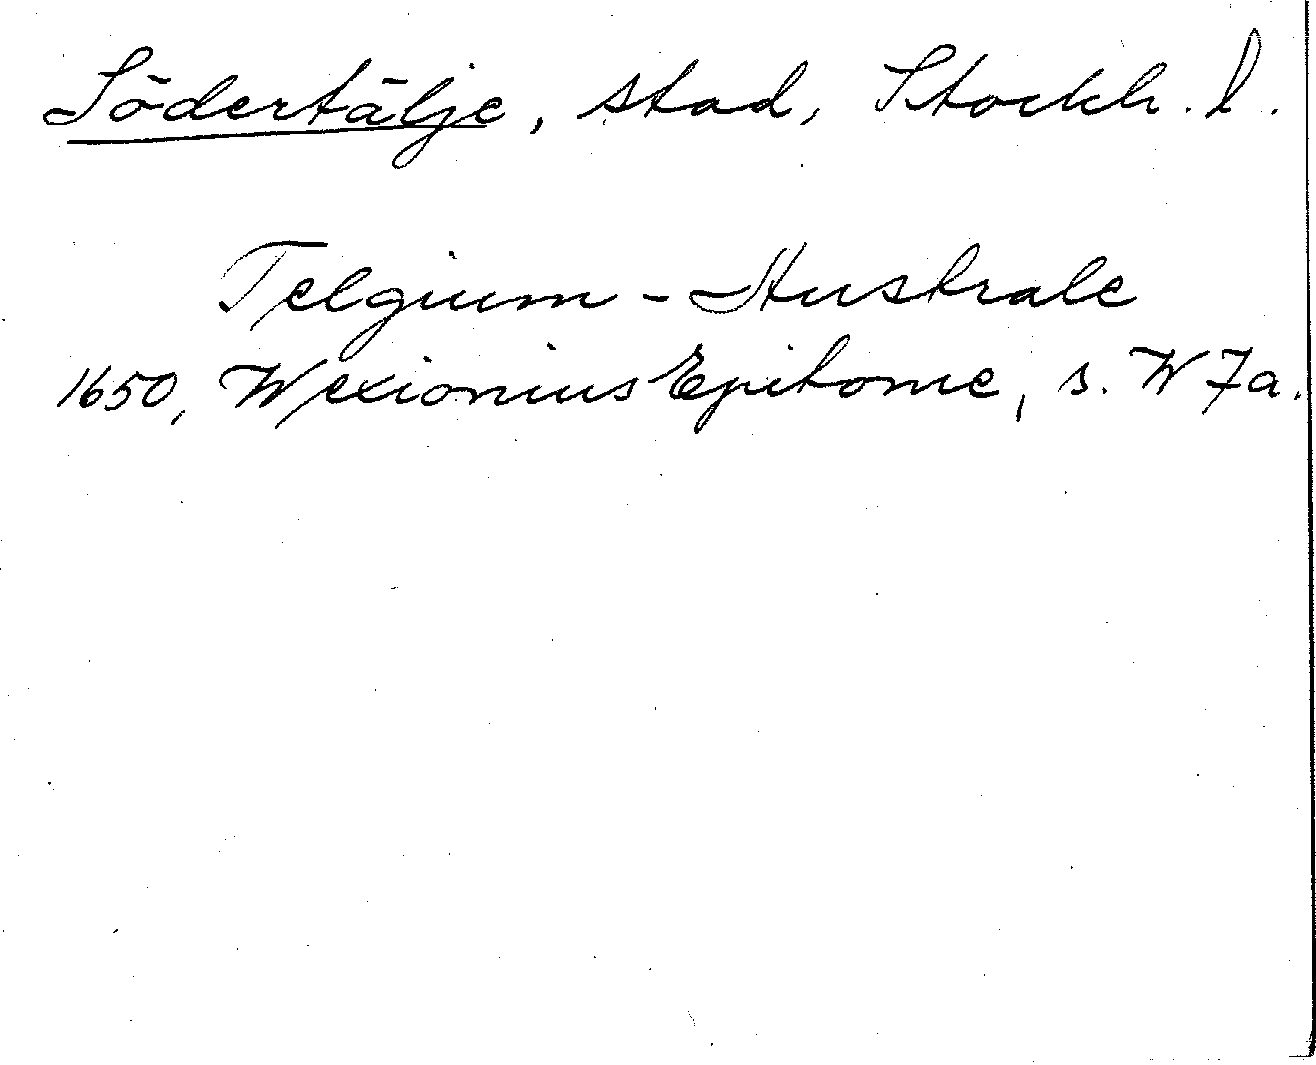 Södertälje, stad, Stockh. l.
Telgium - Australe
1650, Wexionius Epitome, s. W 7a.